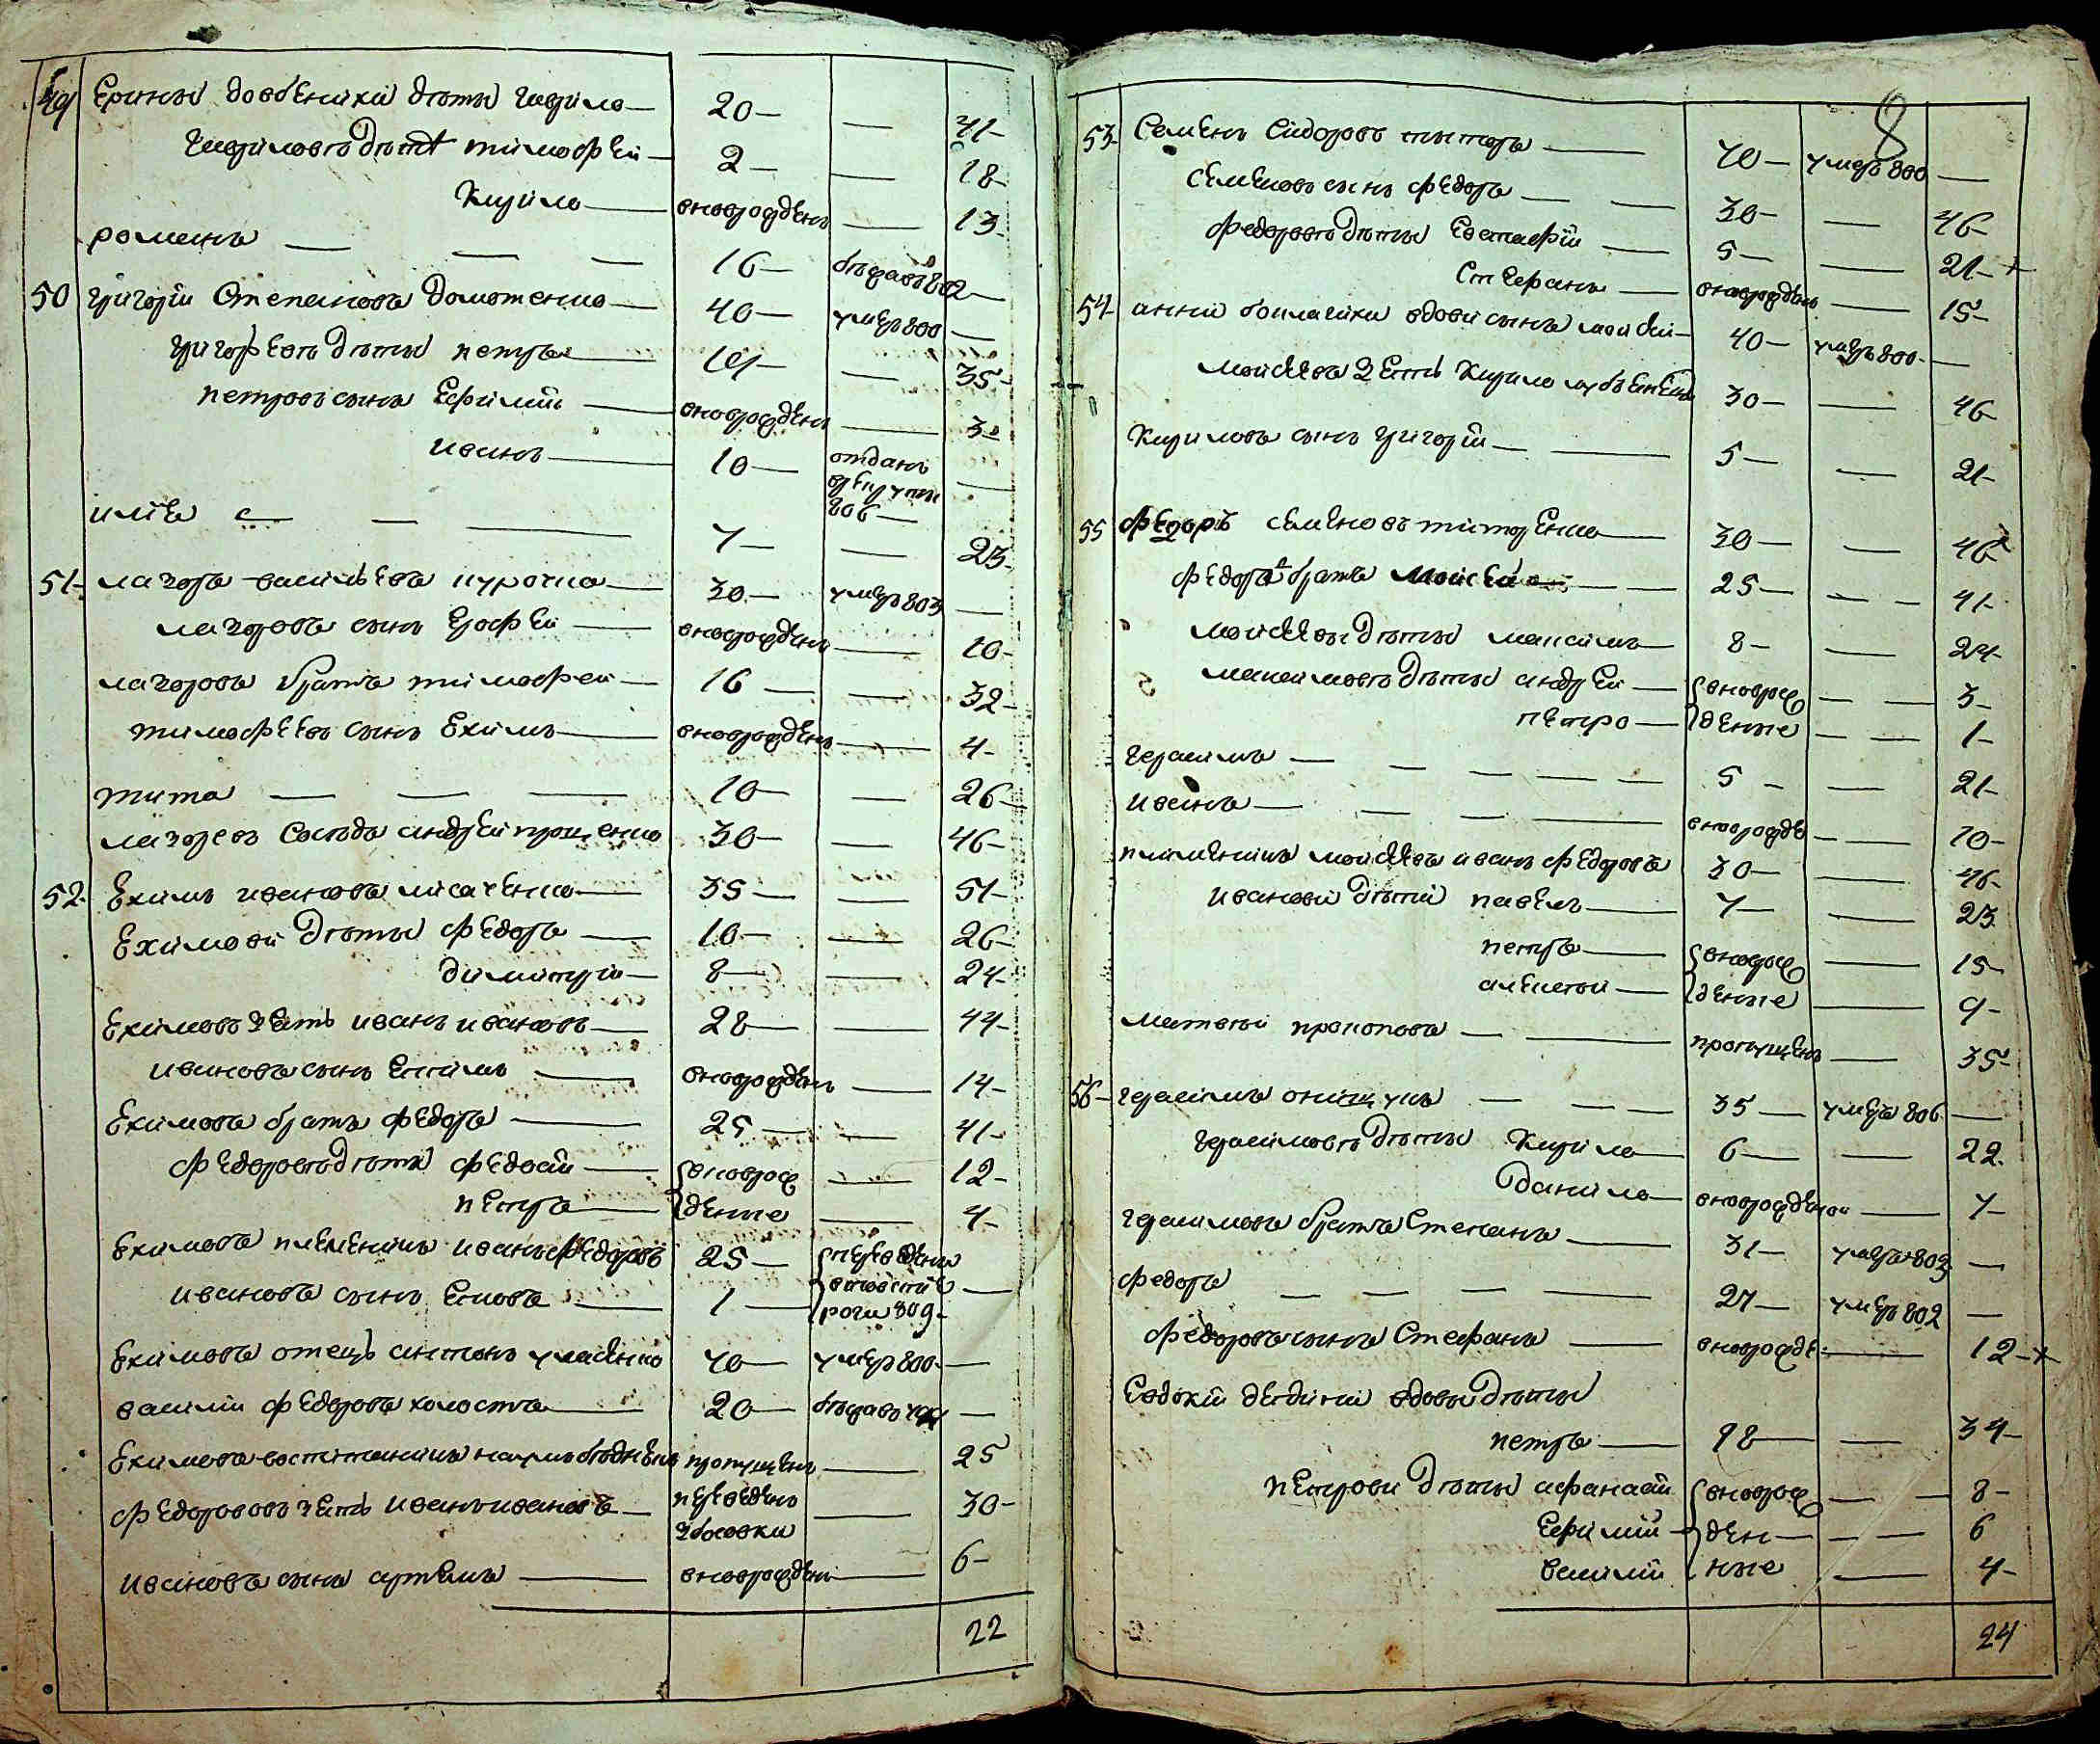 49 Ерины довбенкий дѣты гаврило — 20 — — 41 —
Гавриловы дѣти тимофей — 2 — — 18 —
Кирило — вноврожденъ — 13 —
романъ — — — 16 — бѣжавъ 802 —
50 григорій Степановъ — 40 — умеръ 800 —
григорьевы дѣты петръ — 19 — — 35 —
петровъ сынъ Ефимій — вноврожденъ — 3 —
иванъ — 10 — отданъ
врекруты —
806 —
илія — — — 7 — — 23 —
51 — лазоръ васильевъ курочка — 30 — умеръ 803 —
лазоровъ сынъ Ерофей — вноврожденъ — 10 —
лазоровъ братъ тимофей — 16 — — 32 —
тимофеевъ сынъ Екимъ — вноврожденъ — 4 —
тита — — — 10 — — 26 —
лазоревъ Сосѣдъ андрей проценко 30 — — 46 —
52 — Екимъ ивановъ лисаченко — 35 — — 51 —
Екимови дѣты федоръ — 10 — — 26 —
димитрій — 8 — — 24 —
Екимовъ зеть иванъ ивановъ — 28 — — 44 —
ивановъ сынъ Екимъ — вноврожденъ — 14 —
Екимовъ братъ федоръ — 25 — — 41 —
федоровы дѣты федосій — вноврож — 12 —
петръ — денные — 4 —
Екимовъ племеникъ иванъ федоровъ 25 — переведены
ивановъ сынъ Яковъ — 1 — —
роги 809 —
Екимовъ отецъ антонъ 70 — умеръ 800 —
василій федоровъ холостъ — 20 — бѣжавъ —
Екимовъ воспитаникъ наумъ пропущенъ — 25
федорововъ зеть иванъ ивановъ — переведенъ — 30 —
ивановъ сынъ артемъ — вноврожденъ — 6 —
22
8
53 — Семенъ Сидоровъ титоръ — 70 — умеръ 800 —
Семеновъ сынъ федоръ — — 30 — — 46 —
федоровы дѣты Евстафій — 5 — — 21 — +
Стефанъ — вноврожденъ — 15 —
54 — анни вдови сынъ мойсей — 40 — умеръ 800 —
мойсеевъ зеть Кирило 30 — — 46 —
Кириловъ сынъ григорій — — 5 — — 21 —
55 федоръ семеновъ титоренко — 30 — — 46
федора братъ мойсей — — 25 — — — 41 —
мойсеевы дѣты максимъ — 8 — — 24 —
максимовы дѣты андрей — вноврож — — 3 —
петро — денные — — 1 —
герасимъ — — — — — 5 — — 21 —
иванъ — — — — вноврожде — — 10 —
племеникъ мойсеевъ иванъ федоровъ 30 — — 46 —
иванови дѣти павелъ — 7 — — 23
петръ — вноврож — 15 —
алексѣй — денные — 9 —
матвѣй прокоповъ — — пропущенъ — 35 —
56 — герасимъ онищукъ — — — 35 — умеръ 806 —
герасимовы дѣты Кирило — 6 — — 22
Данило — вноврожденой — 7 —
герасимовъ братъ Степанъ — 31 — умеръ 803 —
федоръ — — — — — 27 — умеръ 802 —
федоровъ сынъ Стефанъ — вноврожде: — 12 — +
Евдокіи вдовы дѣты
петръ — 18 — — 34 —
петрови дѣты афанасій вноврож — — 8 —
Ефимій — ден — — — 6
василій ные — 4 —
24